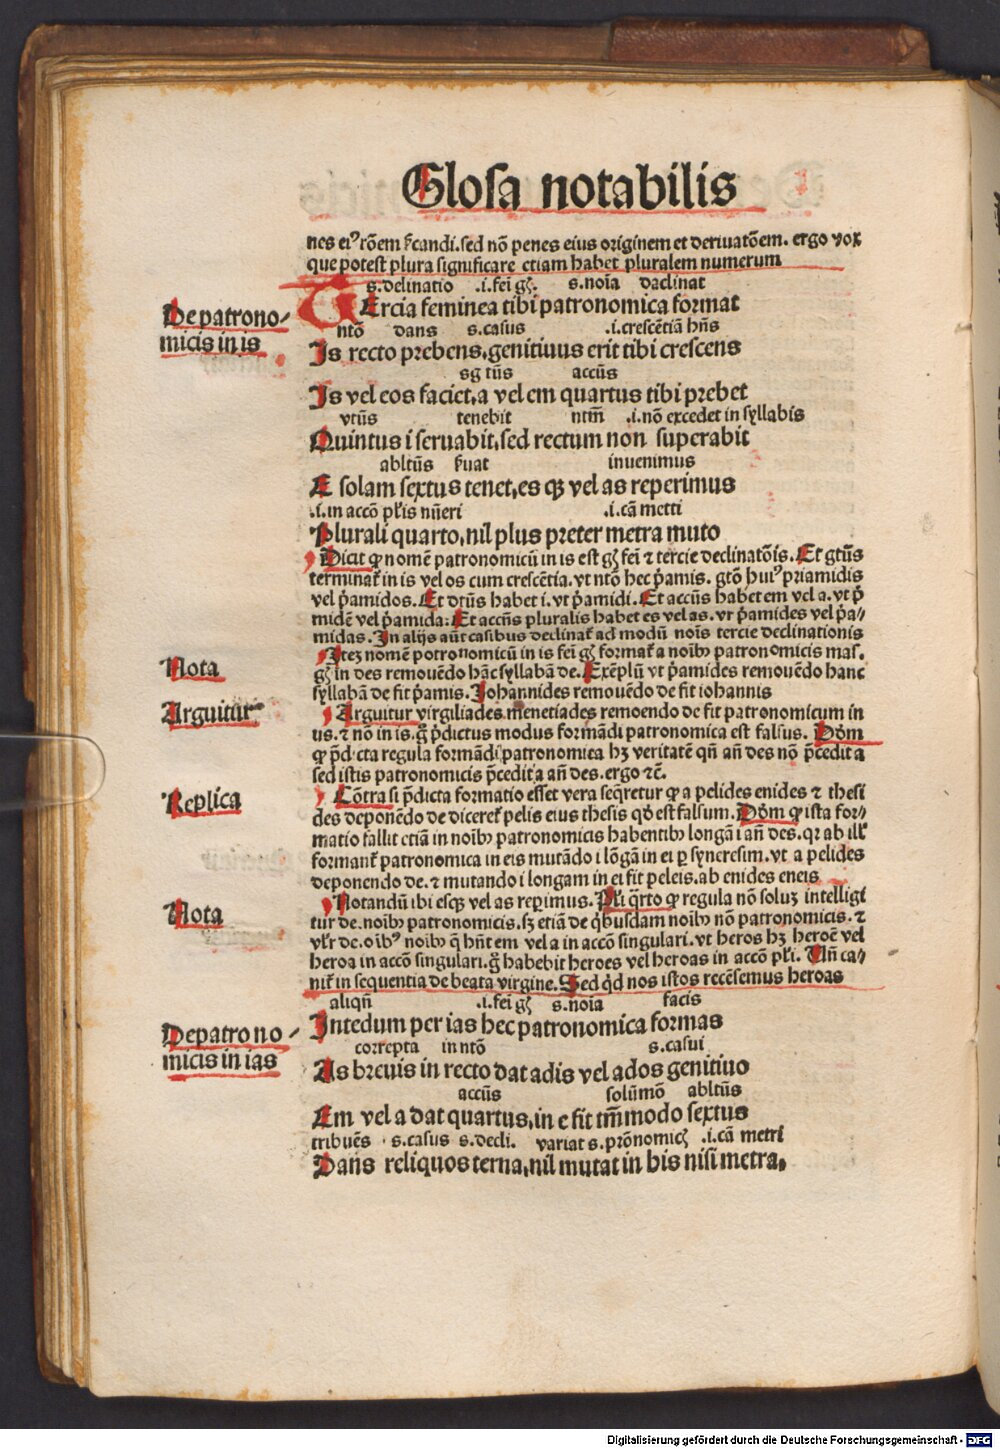 Glosa notabilis
nes eiꝰ rōem p̄candi. sed nō penes eius originem et deriuatōem. ergo vox
que potest plura significare etiam habet pluralem numerum
s. delinatio .i. fei gn̄. s. noīa daclinat
De patrono-
TErcia feminea tibi patronomica format
ntō dans s. casus .i. crescētiā hn̄s
micis in is
Is recto prebens, genitiuus erit tibi crescens
sg tūs accūs
Is vel eos faciet, a vel em quartus tibi prebet
vtūs tenebit ntm̄ .i. nō excedet in syllabis
Quintus i seruabit, sed rectum non superabit
abltūs inuenimus
E solam sextus tenet, es qꝫ vel as reperimus
.i. in accō pl̄is nūeri .i. cā metri
Plurali quarto, nil plus preter metra muto
Dicit ꝙ nomē patronomicū in is est gn̄ fei ⁊ tercie declinatōis. Et gtūs
terminat̄ in is vel os cum crescētia. vt ntō hec p̄amis. gtō huiꝰ priamidis
vel p̄amidos. Et dtūs habet i. vt p̄amidi. Et accūs habet em vel a. vt p̄
midē vel p̄amida: Et accūs pluralis habet es vel as. vt p̄amides vel p̄a-
midas. In alijs aūt casibus declinat̄ ad modū noīs tercie declinationis
Nota
Itez nomē potronomicū in is fei gn̄ format̄ a noībꝫ patronomicis mas.
gn̄ in des remouēdo hāc syllabā de. Exēplū vt p̄amides remouēdo hanc
syllabā de fit p̄amis. Johannides remouēdo de fit iohannis
Arguitur
Arguitur virgiliades menetiades remoendo de fit patronomicum in
us. ⁊ nō in is. g̊ p̄dictus modus formādi patronomica est falsus. Dōm
ꝙ p̄dicta regula formādi patronomica hꝫ veritatē qn̄ an̄ des nō p̄cedit a
sed istis patronomicis p̄cedit a an̄ des. ergo ⁊c̄.
Replica
Cōtra si p̄dicta formatio esset vera seq̄retur ꝙ a pelides enides ⁊ thesi
des deponēdo de diceret̄ pelis eius thesis qd̄ est falsum. Dōm ꝙ ista for-
matio fallit etiā in noībꝫ patronomicis habentibꝫ longā i an̄ des. qr ab ill̄
formant̄ patronomica in eis mutādo i lōgā in ei ꝑ syncresim. vt a pelides
deponendo de. ⁊ mutando i longam in ei fit peleis. ab enides eneis
Nota
Notandū ibi esqꝫ vel as reꝑimus. Pl̄i q̄rto ꝙ regula nō soluꝫ intelligi
tur de. noībꝫ patronomicis. sꝫ etiā de q̄busdam noībꝫ nō patronomicis. ⁊
vl̄r de. oībꝰ noībꝫ q̄ hn̄t em vel a in accō singulari. vt heros hꝫ heroē vel
heroa in accō singulari. g̊ habebit heroes vel heroas in accō pl̄i. Vn̄ ca-
nit̄ in sequentia de beata virgine. Sed q̄d nos istos recēsemus heroas
aliqn̄ .i. fei gn̄ s. noīa facis
De patrono-
Intedum per ias hec patronomica formas
correpta in ntō s. casui
micis in ias
As breuis in recto dat adis vel ados genitiuo
accūs solūmō abltūs
Em vel a dat quartus, in e fit tm̄modo sextus
tribuēs s. casus s. decli. variat s. prōnomic̄ .i. cā metri
Dans reliquos terna, nil mutat in his nisi metra.
Digitalisierung gefördert durch die Deutsche Forschungsgemeinschaft - DFG